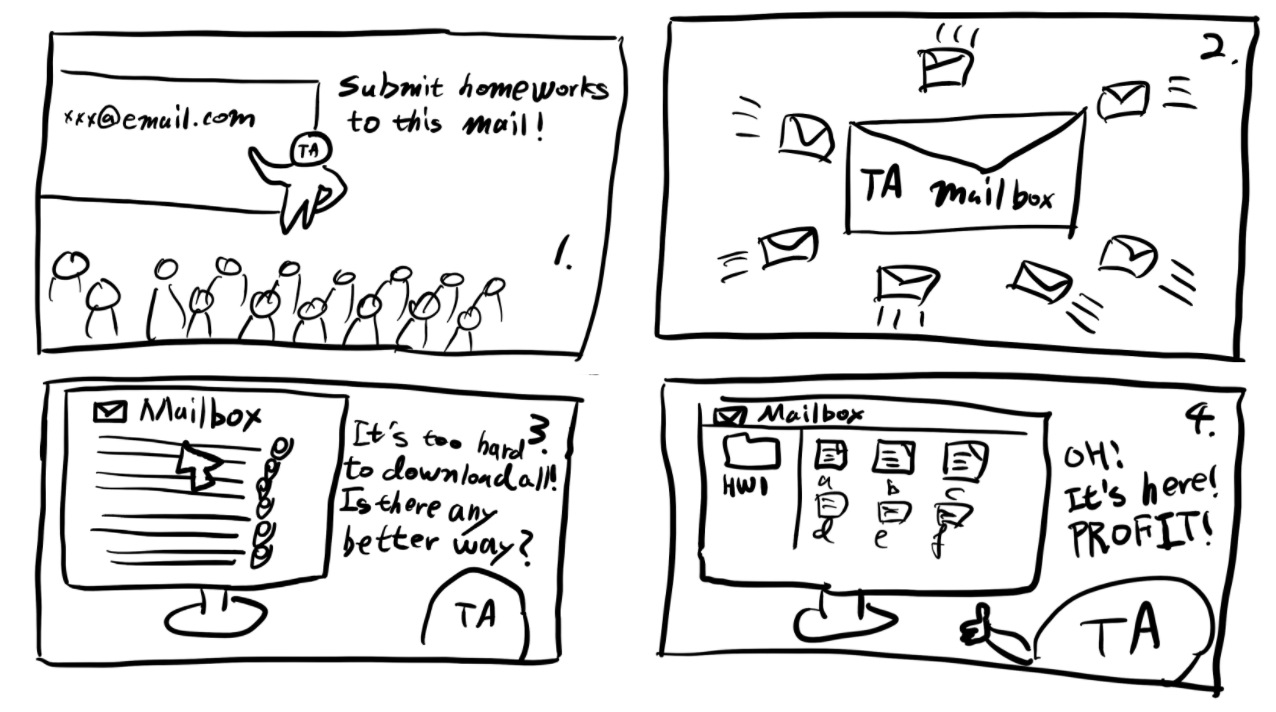 xxx@email.com
Submit homeworks
to this mail!
TA
1.
2.
TA mailbox
Mailbox
3.
It's too hard
to download all!
Is there any
better way?
TA
4.
Mailbox
HW1
a b c
d e f
OH!
It's here!
PROFIT!
TA